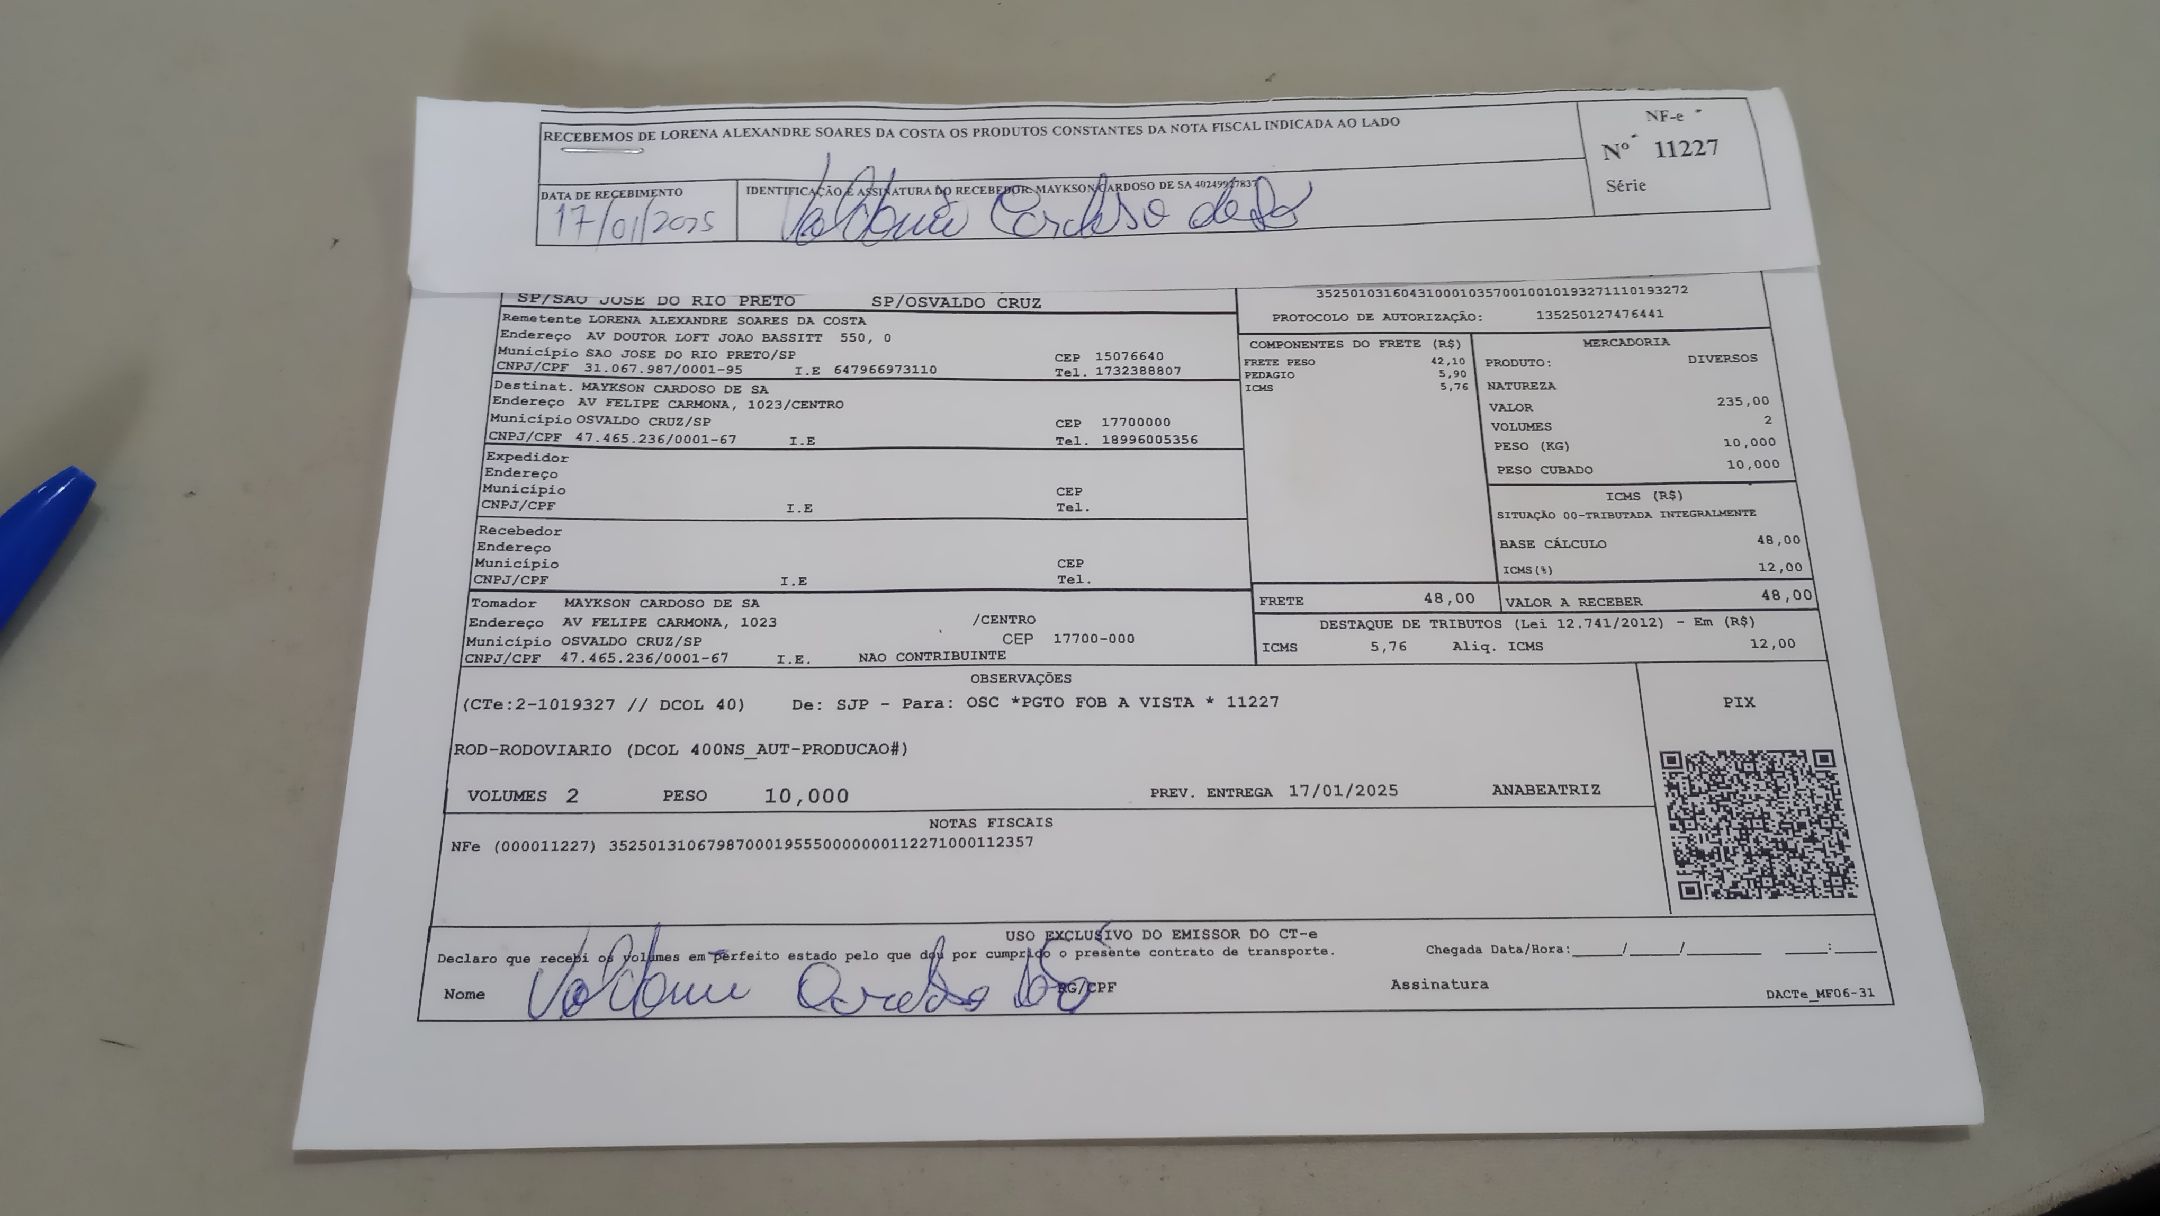 RECEBEMOS DE LORENA ALEXANDRE SOARES DA COSTA OS PRODUTOS CONSTANTES DA NOTA FISCAL INDICADA AO LADO
NF-e
Nº 11227
Série
DATA DE RECEBIMENTO
17/01/2025
IDENTIFICAÇÃO E ASSINATURA DO RECEBEDOR: MAYKSON CARDOSO DE SA
Cardoso de Sa
SP/SAO JOSE DO RIO PRETO SP/OSVALDO CRUZ
PROTOCOLO DE AUTORIZAÇÃO: 135250127476441
Remetente LORENA ALEXANDRE SOARES DA COSTA
Endereço AV DOUTOR LOFT JOAO BASSITT 550, 0
Município SAO JOSE DO RIO PRETO/SP CEP 15076640
CNPJ/CPF 31.067.987/0001-95 I.E 647966973110 Tel. 1732388807
Destinat. MAYKSON CARDOSO DE SA
Endereço AV FELIPE CARMONA, 1023/CENTRO
Município OSVALDO CRUZ/SP CEP 17700000
CNPJ/CPF 47.465.236/0001-67 I.E Tel. 18996005356
Expedidor
Endereço
Município CEP
CNPJ/CPF I.E Tel.
Recebedor
Endereço
Município CEP
CNPJ/CPF I.E Tel.
Tomador MAYKSON CARDOSO DE SA
Endereço AV FELIPE CARMONA, 1023 /CENTRO
Município OSVALDO CRUZ/SP CEP 17700-000
CNPJ/CPF 47.465.236/0001-67 I.E. NAO CONTRIBUINTE
COMPONENTES DO FRETE (R$)
FRETE PESO 42,10
PEDAGIO 5,90
ICMS 5,76
MERCADORIA
PRODUTO: DIVERSOS
NATUREZA
VALOR 235,00
VOLUMES 2
PESO (KG) 10,000
PESO CUBADO 10,000
ICMS (R$)
SITUAÇÃO 00-TRIBUTADA INTEGRALMENTE
BASE CÁLCULO 48,00
ICMS(%) 12,00
FRETE 48,00 VALOR A RECEBER 48,00
DESTAQUE DE TRIBUTOS (Lei 12.741/2012) - Em (R$)
ICMS 5,76 Aliq. ICMS 12,00
OBSERVAÇÕES
(CTe:2-1019327 // DCOL 40) De: SJP - Para: OSC *PGTO FOB A VISTA * 11227
ROD-RODOVIARIO (DCOL 400NS_AUT-PRODUCAO#)
VOLUMES 2 PESO 10,000 PREV. ENTREGA 17/01/2025 ANABEATRIZ
PIX
NOTAS FISCAIS
NFe (000011227)
USO EXCLUSIVO DO EMISSOR DO CT-e
Declaro que recebi os volumes em perfeito estado pelo que dou por cumprido o presente contrato de transporte.
Chegada Data/Hora:____/____/________ ____:____
Nome
RG/CPF
Assinatura
DACTe_MF06-31